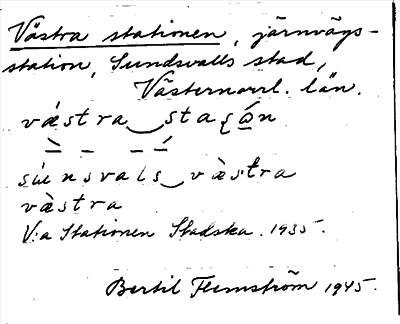 Västra stationen, järnvägs-
station, Sundsvalls stad,
Västernorrl. län.
væstra‿sta
vals‿vàstra
vàstra
V:a Stationen Stadska. 1935.
Bertil Flemström 1945.